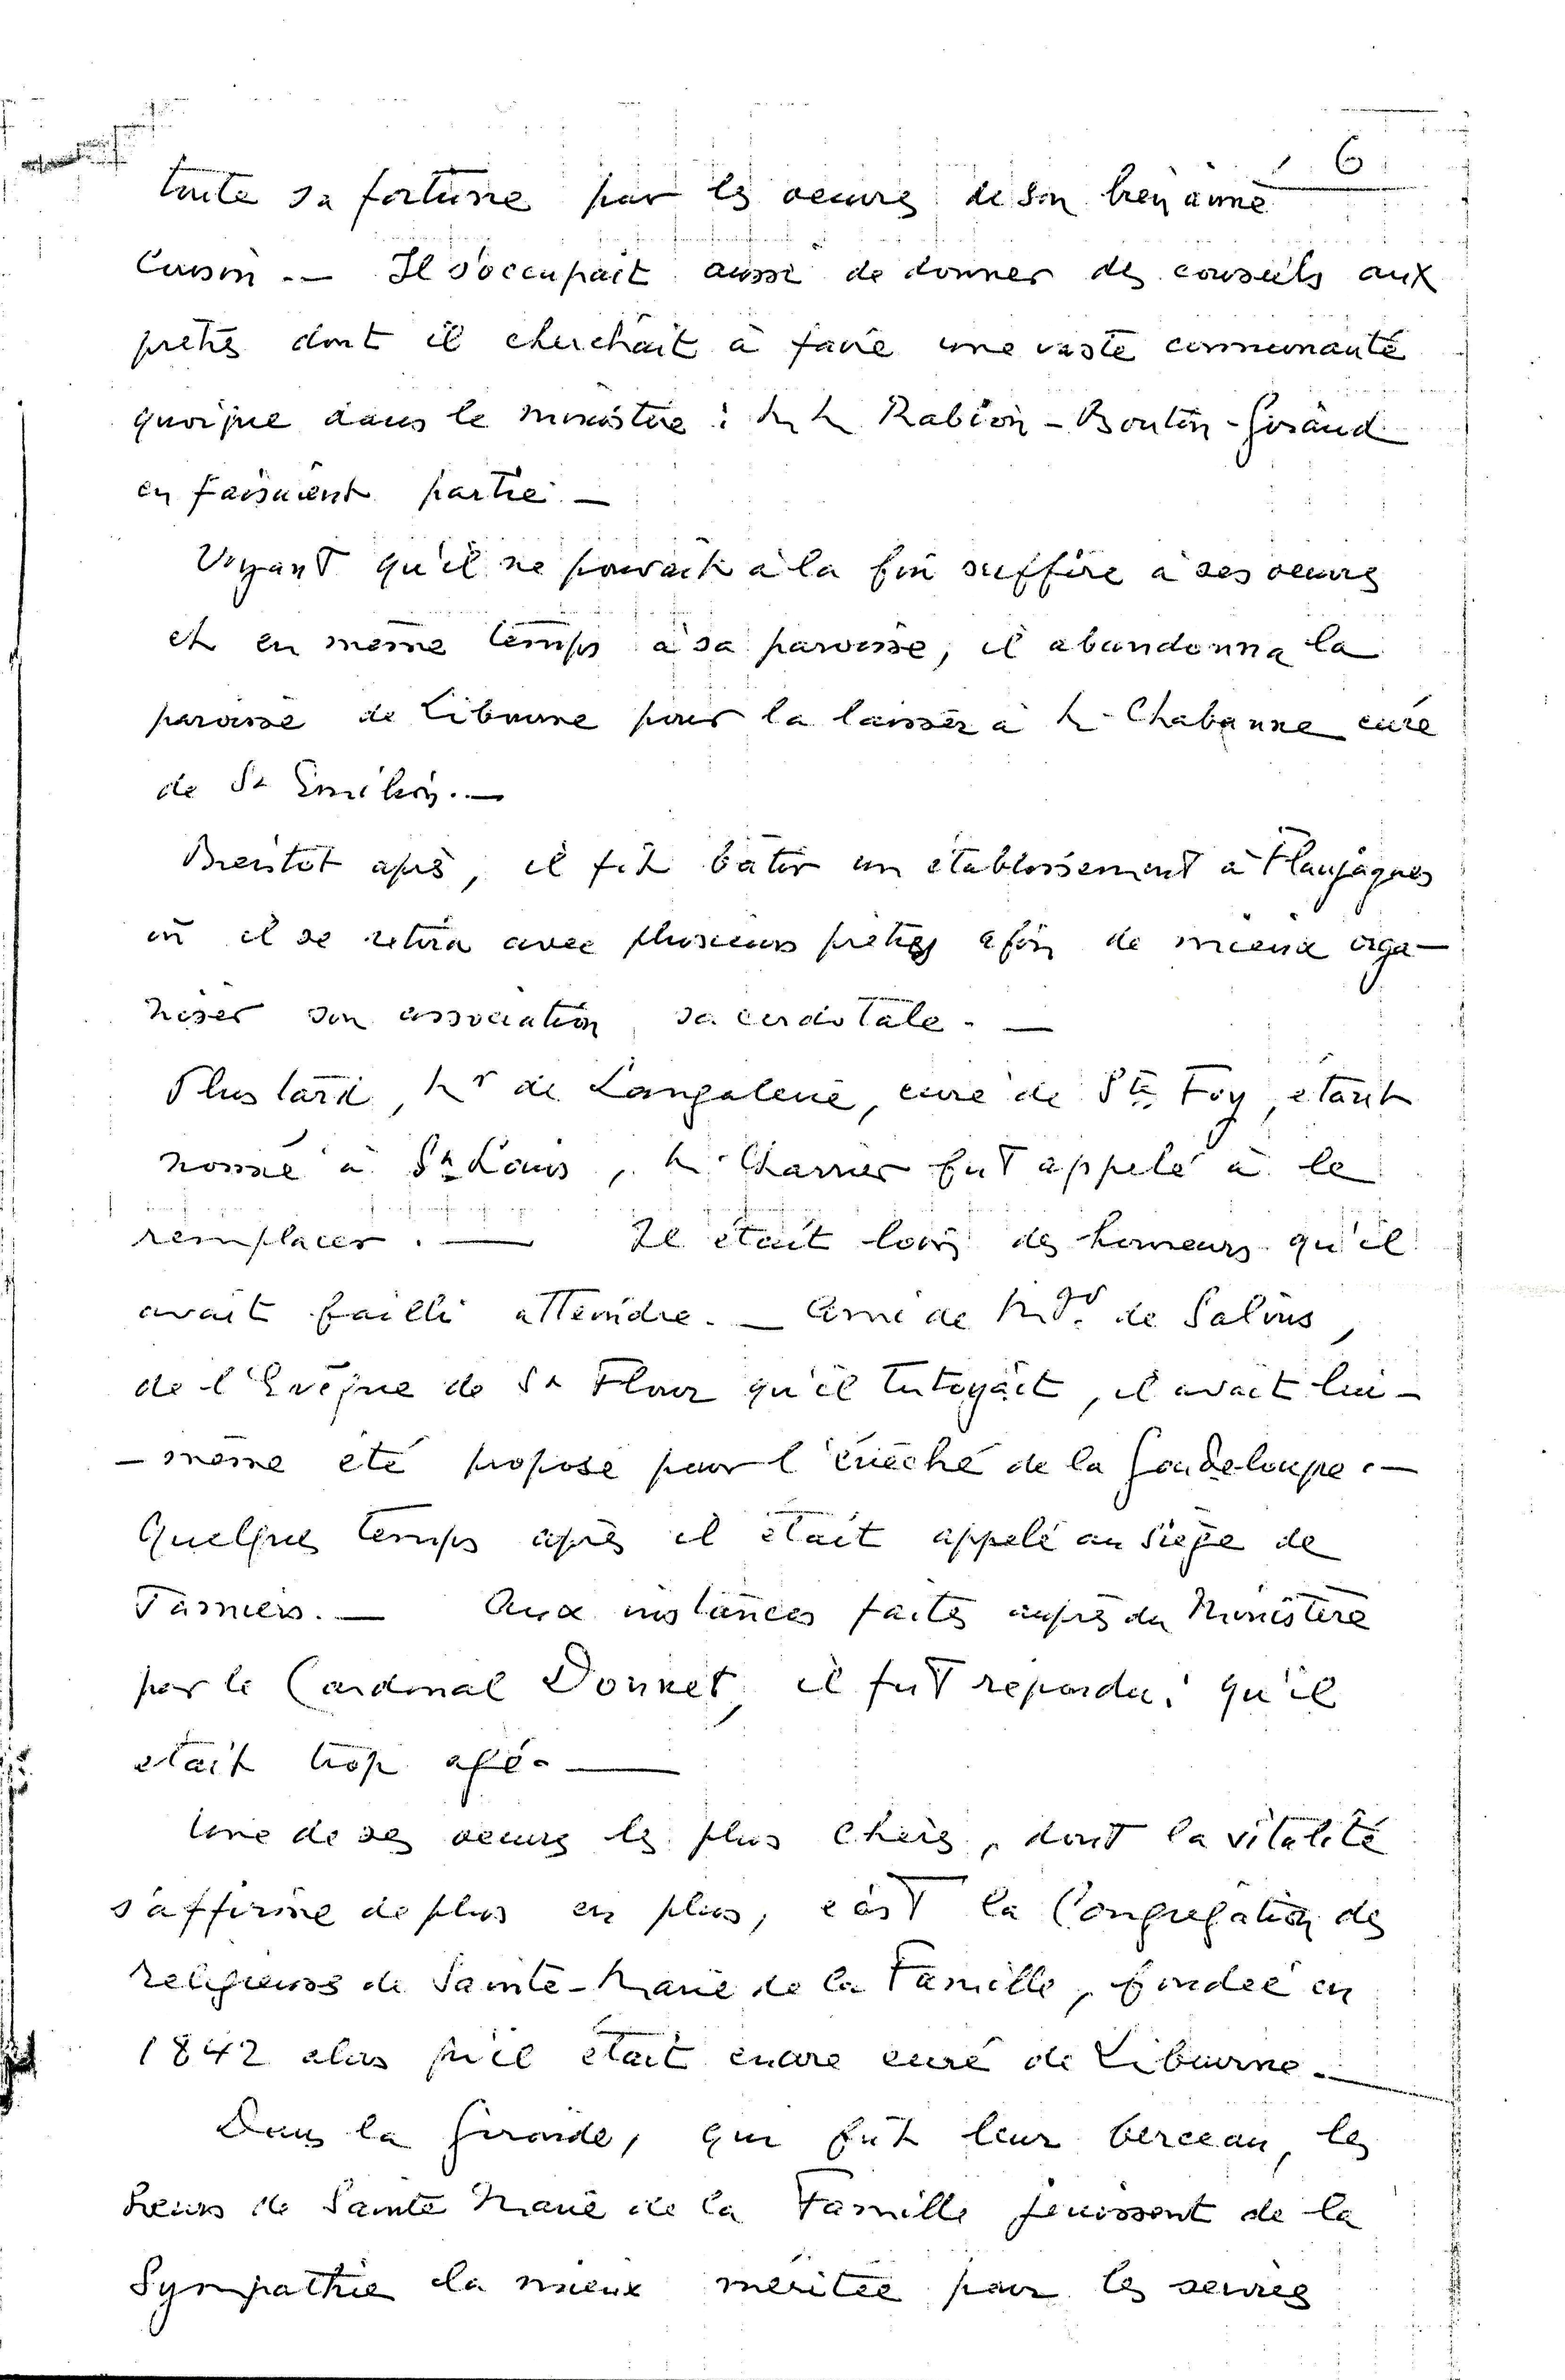 6
toute sa fortune pour les oeuvres de son bien aimé
Cousin. — Il s'occupait aussi de donner des conseils aux
prêtres dont il cherchait à faire une vaste communauté
quoique dans le ministère : M M Rabion - Boutin - Giraud
en faisaient partie —
Voyant qu'il ne pouvait à la fin suffire à ses oeuvres
et en même temps à sa paroisse, il abandonna la
paroisse de Libourne pour la laisser à M. Chabanne curé
de St Emilion. —
Bientôt après, il fit bâtir un établissement à Flaujagues
où il se retira avec plusieurs prêtres afin de mieux orga-
niser son association sacerdotale. —
Plus tard, Mr de Langalerie, curé de Ste Foy, étant
nommé à St Louis, M. Charrier fut appelé à le
remplacer. — Il était loin des honneurs qu'il
avait failli atteindre. — Ami de Mgr. de Salinis,
de l'Evêque de St Flour qu'il tutoyait, il avait lui-
- même été proposé pour l'évêché de la Guadeloupe. —
Quelques temps après il était appelé au siège de
Pamiers. — Aux instances faites auprès du Ministère
par le Cardinal Donnet, il fut répondu : qu'il
était trop agé. —
Une de ses oeuvres les plus chères, dont la vitalité
s'affirme de plus en plus, c'est la Congrégation des
religieuses de Sainte-Marie de la Famille, fondée en
1842 alors qu'il était encore curé de Libourne. —
Dans la Gironde, qui fut leur berceau, les
Soeurs de Sainte Marie de la Famille jouissent de la
Sympathie la mieux méritée pour les services